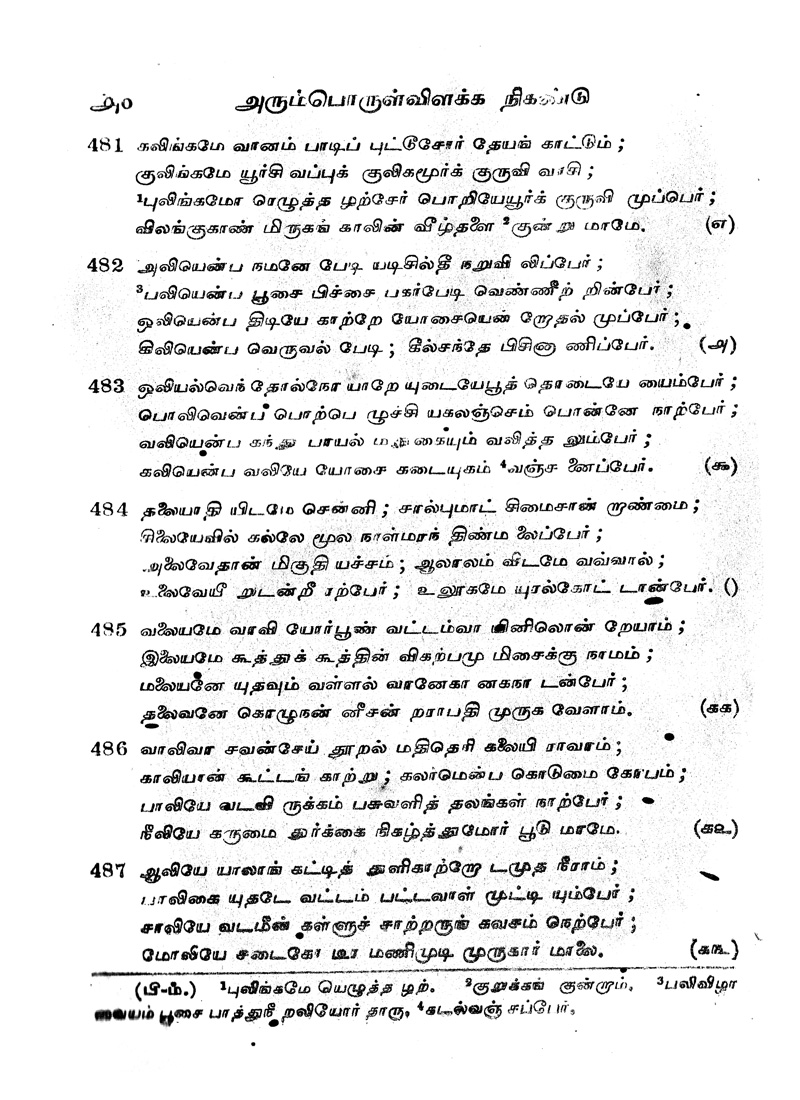 ௯௦ அரும்பொருள்விளக்க நிகண்டு
481 கலிங்கமே வானம் பாடிப் புட்டூசோர் தேயங் காட்டும் ;
குலிங்கமே யூர்சி வப்புக் குலிகமூர்க் குருவி வாசி ;
¹புலிங்கமோ ரெழுத்த ழற்சேர் பொறியேயூர்க் குருவி முப்பெர் ;
விலங்குகாண் மிருகங் காலின் வீழ்தளை ²குன்று மாமே. (எ)
482 அலியென்ப நமனே பேடி யடிசில்தீ நறுவி லிப்பேர் ;
³பலியென்ப பூசை பிச்சை பகர்பேடி வெண்ணீற் றின்பேர் ;
ஒலியென்ப திடியே காற்றே யோசையென் றோதல் முப்பேர் ;
கிலியென்ப வெருவல் பேடி ; கீல்சந்தே பிசினா ணிப்பேர். (அ)
483 ஒலியல்வெந் தோல்நோ யாறே யுடையேபூத் தொடையே யைம்பேர் ;
பொலிவென்ப பொற்பெ ழுச்சி யகலஞ்செம் பொன்னே நாற்பேர் ;
வலியென்ப கந்து பாயல் மதுகையும் வலித்த லும்பேர் ;
கலியென்ப வலியே யோசை கடையுகம் ⁴வஞ்ச னைப்பேர். (௯)
484 தலையாதி யிடமே சென்னி ; சால்புமாட் சிமைசான் றாண்மை ;
சிலையேவில் கல்லே மூல நாள்மரந் திண்ம லைப்பேர் ;
அலைவேதான் மிகுதி யச்சம் ; ஆலாலம் விடமே வவ்வால் ;
உலைவேயீ றுடன்றீ ரற்பேர் ; உலூகமே யுரல்கோட் டான்பேர். ()
485 வலையமே வாவி யோர்பூண் வட்டம்வா யினிலொன் றேயாம் ;
இலையமே கூத்துக் கூத்தின் விகற்பமு மிசைக்கு நாமம் ;
மலையனே யுதவும் வள்ளல் வானேகா னகநா டன்பேர் ;
தலைவனே கொழுநன் னீசன் றராபதி முருக வேளாம். (௧௧)
486 வாலிவா சவன்சேய் தூறல் மதிதெரி கலையி ராவாம் ;
காலியான் கூட்டங் காற்று ; கலர்மென்ப கொடுமை கோபம் ;
பாலியே வடவி ருக்கம் பசுவளித் தலங்கள் நாற்பேர் ;
நீலியே கருமை துர்க்கை நிகழ்த்துமோர் பூடு மாமே. (௧௨)
487 ஆலியே யாலாங் கட்டித் துளிகாற்றோ டமுத நீராம் ;
பாலிகை யுதடே வட்டம் பட்டவாள் முட்டி யும்பேர் ;
சாலியே வடமீன் கள்ளுச் சாற்றருங் கவசம் நெற்பேர் ;
மோலியே சடைகோ டீர மணிமுடி முருகார் மாலை. (௧௩)
(பி-ம்.) ¹புலிங்கமே யெழுத்த ழற். ²குறுக்கங் குன்றும், ³பலிவிழா
வையம் பூசை பாத்துநீ றலியோர் தாரு, ⁴கடல்வஞ் சப்பேர்,